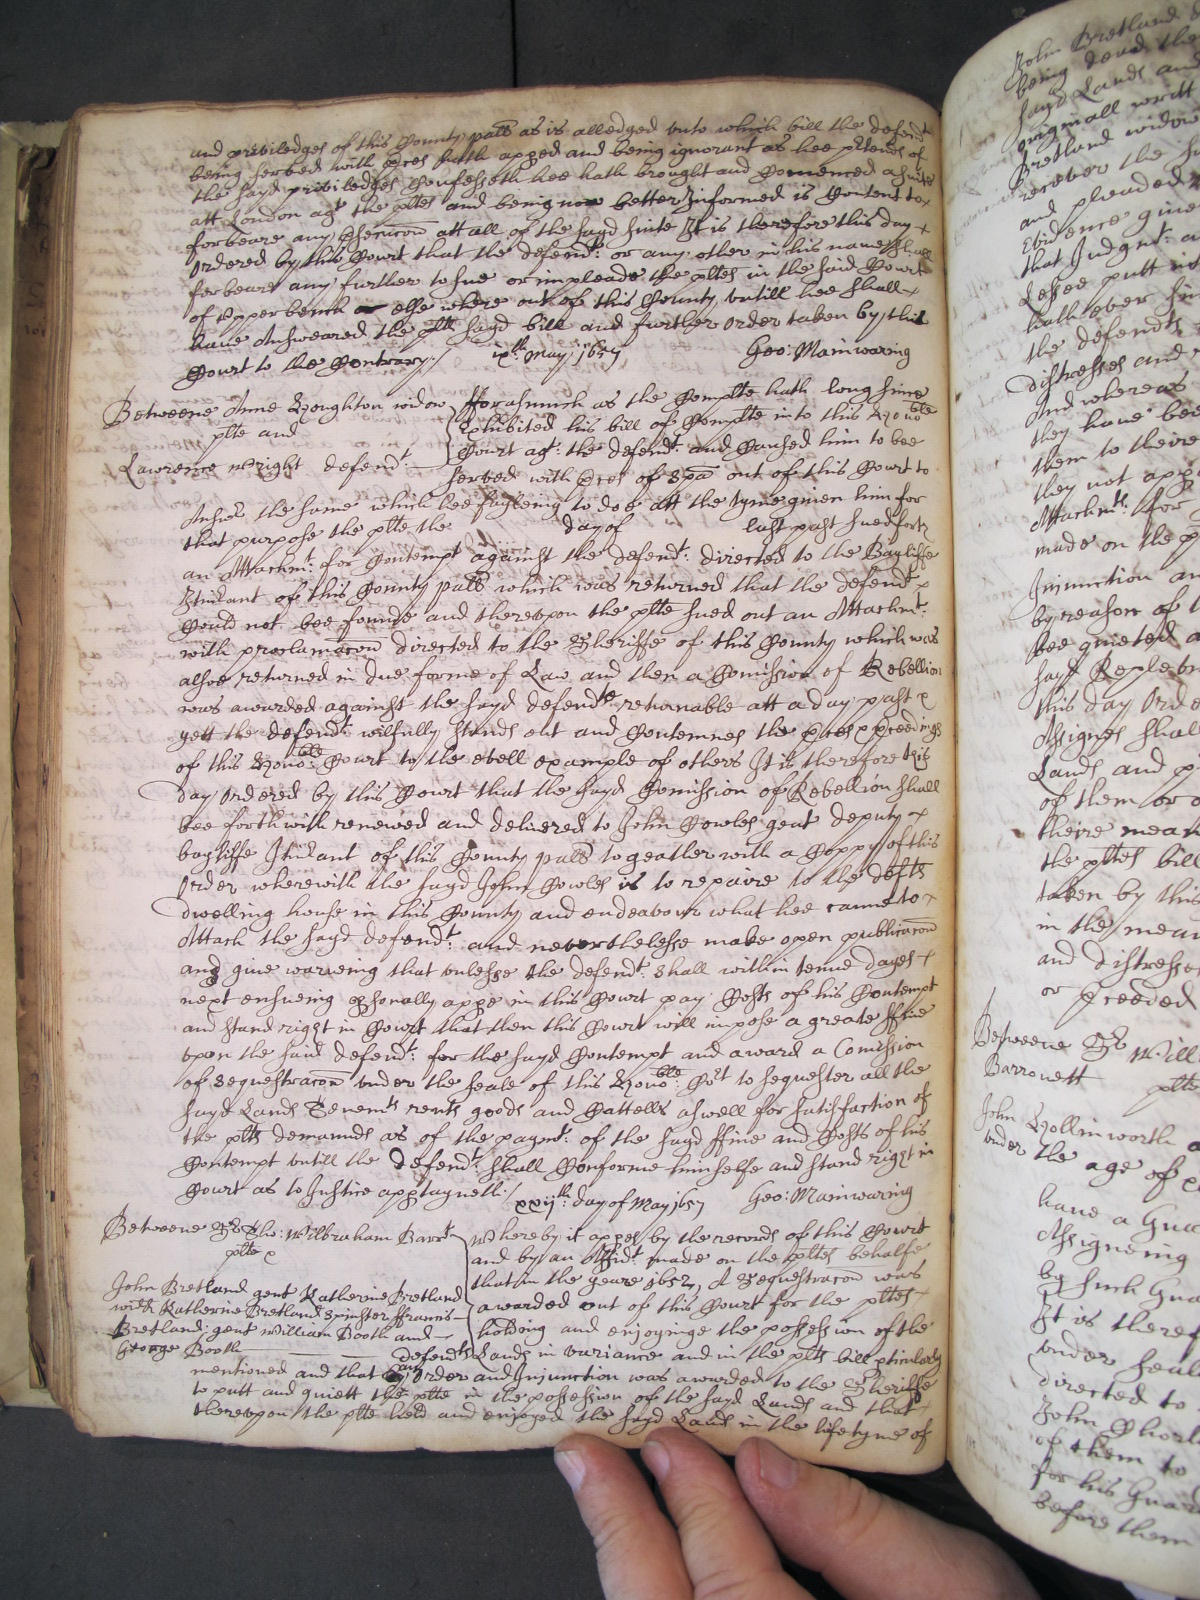 and priviledges of this County pallt as is alledged unto which bill the defendt
being served with pces hath apped and being ignorant as hee ptends of
the sayd priviledges Confesseth hee hath brought and Comenced a suite
att London agt the pltes and being now better Informed is Content to
forbeare any psecucon att all of the sayd suite It is therefore this day
Ordered by this Court that the defendt: or any other in his name shall
forbeare any further to sue or impleade the pltes in the said Court
of Upper bench or else where out of this County untill hee shall
have Answeared the plts sayd bill and further order taken by this
Court to the Contrary./ ixth May 1657 Geo: Mainwaring
Betweene Anne Houghton widow plte and
Lawrence Wright defendt.
Forasmuch as the Complte hath long since
Exhibited his bill of Complte into this Honoble
Court agt: the defendt: and Caused him to bee
served with pces of Spa out of this Court to
Answe the same which hee fayleing to doe att the tyme given him for
that purpose the plte the day of last past sued forth
an Attachmt: for Contempt against the defendt: directed to the Bayliffe
Itinant of this County pallt which was returned that the defendt
Could not bee founde and thereupon the plte sued out an Attachmt:
with proclamacon directed to the Sheriffe of this County which was
alsoe returned in due forme of Law and then a Comission of Rebellion
was awarded against the sayd defendte returnable att a day past
yett the defendt wilfully stands out and Contemnes the pces & pceedings
of this Honoble: Court to the evell example of others It is therefore this
day Ordered by this Court that the sayd Comission of Rebellion shall
bee forthwith renewed and delivered to John Cowles gent deputy
bayliffe Itinant of this County pallt togeather with a Coppy of this
Order wherewith the sayd John Cowles is to repaire to the defts
dwelling house in this County and endeavour what hee canne to
Attach the sayd defendt: and neverthelesse make open publicacon
and give warneing that unlesse the defendt: shall within tenne dayes
next ensueing psonally appe in this Court pay Costs of his Contempt
and stand right in Court that then this Court will impose a greate ffine
upon the said defendt: for the sayd Contempt and award a Comission
of Sequestracon under the seale of this Honoble: Cort to sequester all the
sayd Lands Tenemts rents goods and Cattells aswell for satisfaction of
the plts demaunds as of the paymt: of the sayd ffine and Costs of his
Contempt untill the defendt: shall Conforme himselfe and stand right in
Court as to Justice apptayneth:/ xxijth day of May 1657 Geo: Mainwaring
Betweene Sr Tho: Wilbraham Barrt
plte
John Bretland gent Katherine Bretland
widd Katherine Bretland Spinster ffrancis
Bretland gent William Booth and
George Booth defendts
Whereby it appes by the records of this Court
and by an Affidt made on the pltes behalfe
that in the yeare 1652, A Sequestracon was
awarded out of this Court for the pltes
holding and enjoyinge the possession of the
Lands in variance and in the plts bill pticularly
mentioned and that an Order and Injunction was awarded to the Sheriffe
to putt and quiett the plte in the possession of the sayd Lands and that
thereupon the plte held and enjoyed the sayd Lands in the lifetyme of
John Bretland
being dead the
sayd Lands and
originall writt
Bretland widow
recover the
and pleaded
Evidence give
that Judgmt: a
Lessee putt in
hath ever sin
the defendts
distresses and
And whereas
they have bee
them to theire
they not app
Attachmts: for
made on the p
Injunction an
by reason of
bee quieted a
sayd Replevin
this day Orde
Assignes shall
Lands and p
of them or o
theire mean
the pltes bill
taken by this
in the mean
and distresse
or pceeded
Betweene Sr Will
Barronett plte
John Hollinworth a
under the age of
have a Gua
Assigneing
by such Gua
It is theref
under seale
directed to
John Chorl
of them to
for his Guar
before them